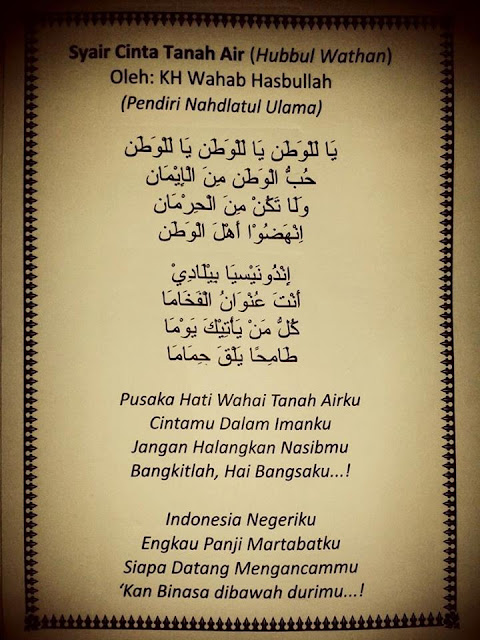 Syair Cinta Tanah Air (Hubbul Wathan)
Oleh: KH Wahab Hasbullah
(Pendiri Nahdlatul Ulama)
يَا لَلْوَطَن يَا لَلْوَطَن يَا لَلْوَطَن
حُبُّ الْوَطَن مِنَ الْإِيْمَان
وَلَا تَكُنْ مِنَ الْحِرْمَان
اِنْهَضُوْا أَهْلَ الْوَطَن
إِنْدُونَيْسيَا بِيْلَادِيْ
أَنْتَ عُنْوَانُ الْفَخَامَا
كُلُّ مَنْ يَأْتِيْكَ يَوْمَا
طَامِحًا يَلْقَ حِمَامَا
Pusaka Hati Wahai Tanah Airku
Cintamu Dalam Imanku
Jangan Halangkan Nasibmu
Bangkitlah, Hai Bangsaku...!
Indonesia Negeriku
Engkau Panji Martabatku
Siapa Datang Mengancammu
‘Kan Binasa dibawah durimu...!